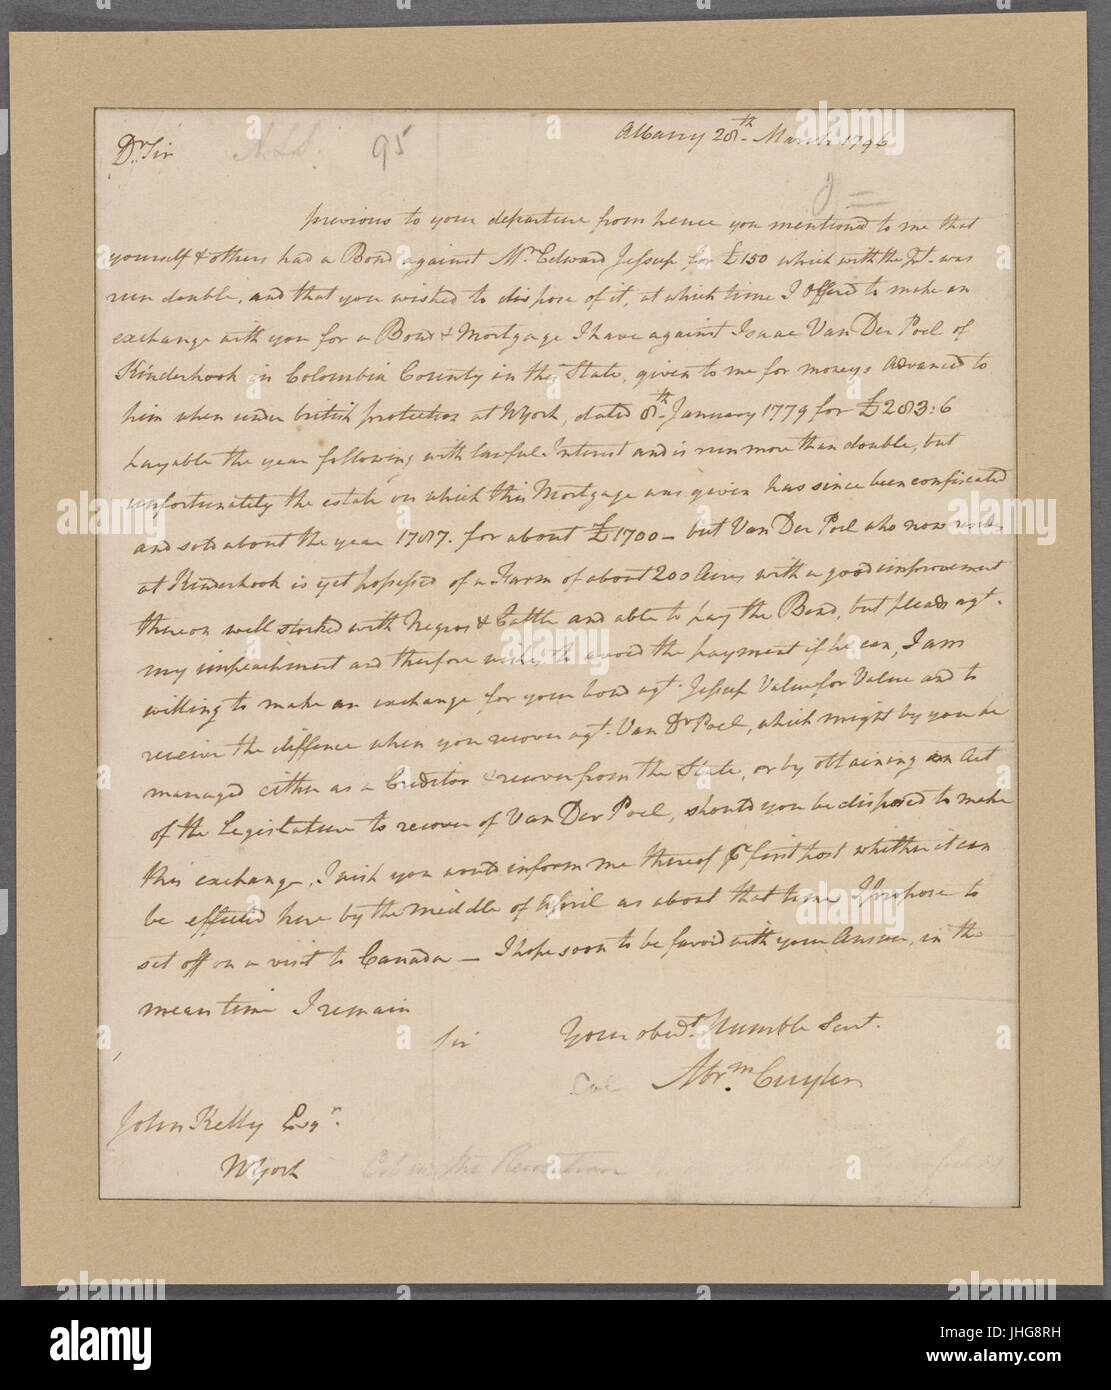 Albany 28th March 1796
Dr Sir
A.L.S. 95
previous to your departure from hence you mentioned to me that
yourself & others had a Bond against Mr Edward Jessup for £150 which with the Int. was
run double, and that you wished to dispose of it, at which time I offered to make an
exchange with you for a Bond & Mortgage I have against Isaac Van Der Poel of
Kinderhook in Colombia County in this State, given to me for moneys Advanced to
him when under british protection at NYork, dated 8th January 1779 for £283:6
payable the year following with lawful Interest and is run more than double, but
unfortunately the estate on which this Mortgage was given has since been confiscated
and sold about the year 1787. for about £1700 — but Van Der Poel who now resides
at Kinderhook is yet possessed of a Farm of about 200 Acres with a good improvement
thereon well stocked with Negros & Cattle and able to pay the Bond, but pleads agt.
my impeachment and therfore wishes to avoid the payment if he can, I am
willing to make an exchange for your bond agt. Jessup Value for Value and to
receive the diffence when you recover agt. Van Dr Poel, which might by you be
managed either as a Creditor & recover from the State, or by obtaining an Act
of the Legislature to recover of Van Der Poel, should you be disposed to make
this exchange, I wish you would inform me thereof pr first post whether it can
be effected here by the middle of April as about that time I propose to
set off on a visit to Canada — I hope soon to be favord with your Answer, in the
mean time I remain
Sir
Your obedt. Humble Servt.
Col Abrm. Cuyler
John Kelly Esqr.
NYork
Col in the Revolution
alamy
JHG8RH
www.alamy.com